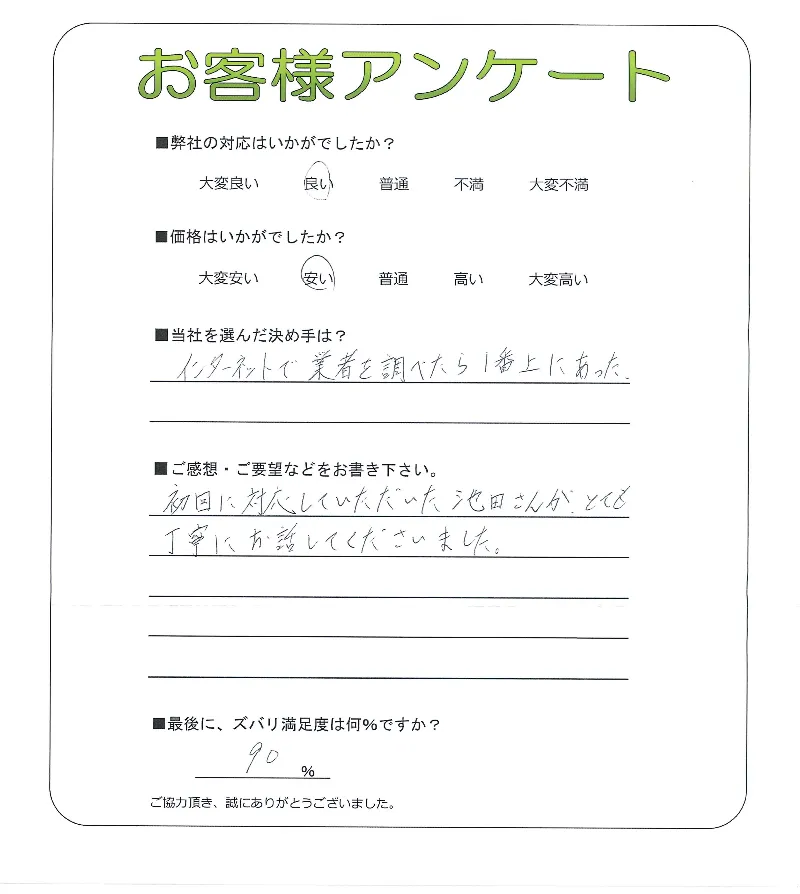 お客様アンケート
■弊社の対応はいかがでしたか？
大変良い 良い 普通 不満 大変不満
■価格はいかがでしたか？
大変安い 安い 普通 高い 大変高い
■当社を選んだ決め手は？
インターネットで業者を調べたら1番上にあった.
■ご感想・ご要望などをお書き下さい。
初回に対応していただいた池田さんが、とても
丁寧にお話してくださいました。
■最後に、ズバリ満足度は何%ですか？
90 %
ご協力頂き、誠にありがとうございました。